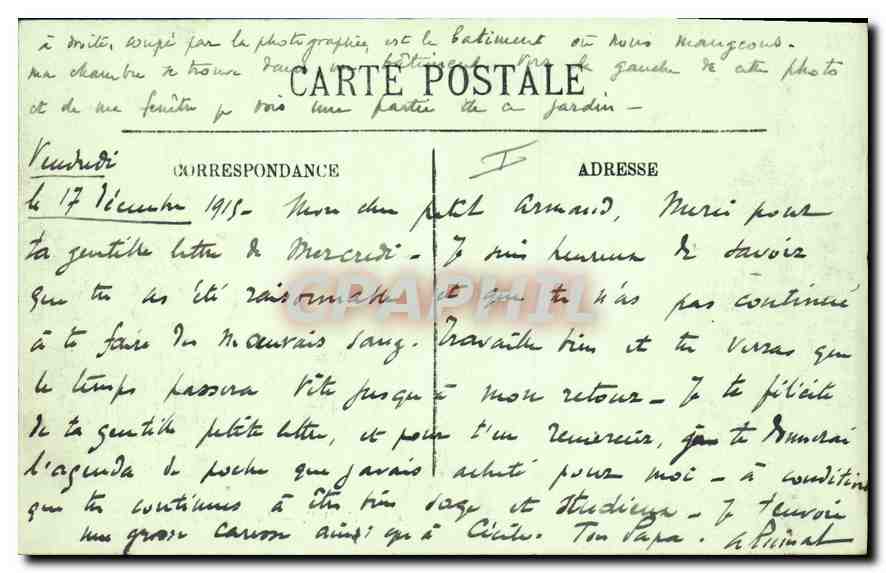 à droite, coupé par la photographie, est le bâtiment où nous mangeons.
ma chambre se trouve dans un bâtiment vers la gauche de cette photo
CARTE POSTALE
et de ma fenêtre je vois une partie de ce jardin -
I
CORRESPONDANCE
ADRESSE
Vendredi
le 17 Décembre 1915 - Mon cher petit Armand, Merci pour
ta gentille lettre de Mercredi - Je suis heureux de savoir
que tu as été raisonnable et que tu n'as pas continué
CPAPHIL
à te faire du mauvais sang. Travaille bien et tu verras que
le temps passera vite jusqu'à mon retour - Je te félicite
de ta gentille petite lettre, et pour t'en remercier, je te donnerai
l'agenda de poche que j'avais acheté pour moi - à condition
que tu continues à être bien sage et studieux - Je t'envoie
une grosse caresse ainsi qu'à Cécile. Ton Papa.